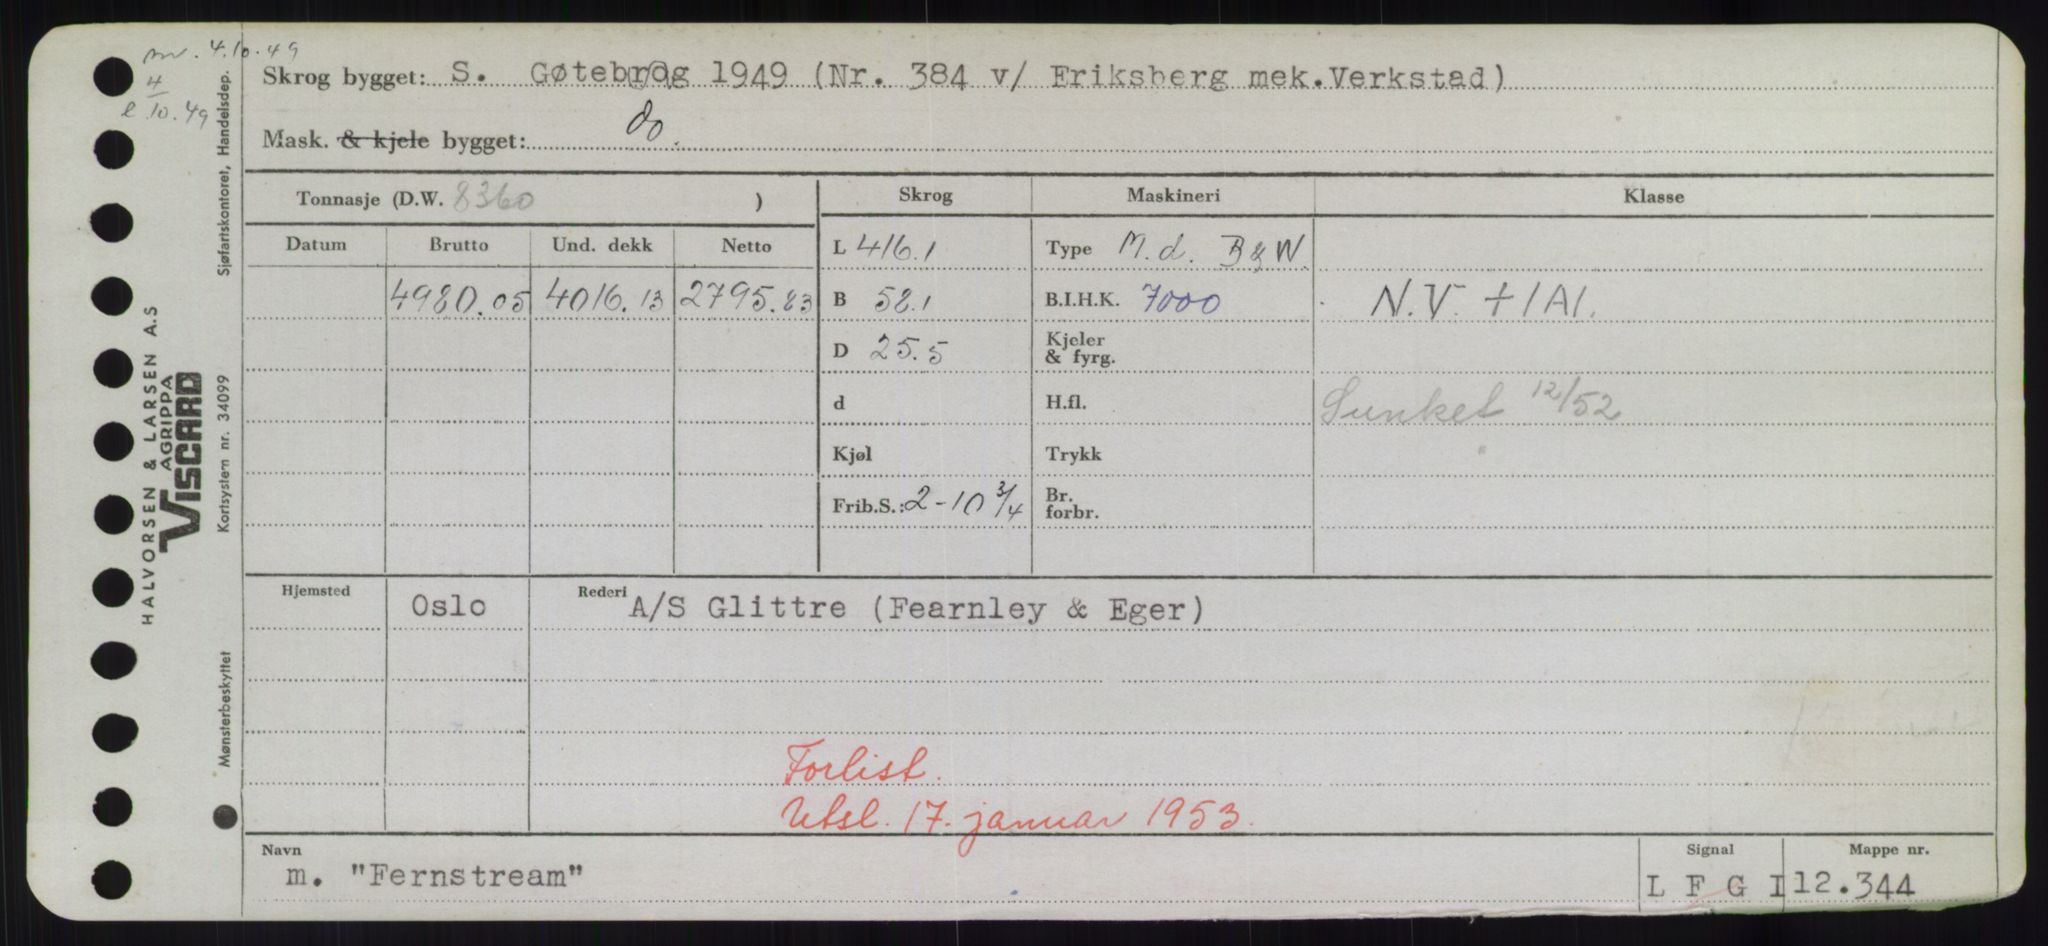 nv. 4.10.49
4
e 10.49
Skrog bygget: S. Gøtebrog 1949 (Nr. 384 v/ Eriksberg mek.Verkstad)
Mask. & kjele bygget: do.
Tonnasje (D.W. 8360 )
Skrog
Maskineri
Klasse
Datum
Brutto
Und. dekk
Netto
L 416.1
Type M.d. B&W.
4980.05
4016.13
2795.83
B 58.1
B.I.H.K. 7000
N.V. +1A1.
D 25.5
Kjeler
& fyrg.
d
H.fl.
Sunket 12/52
Kjøl
Trykk
Frib.S.: 2-10 3/4
Br.
forbr.
Hjemsted
Oslo
Rederi
A/S Glittre (Fearnley & Eger)
Forlist.
Utsl. 17. januar 1953.
Navn
m. "Fernstream"
Signal
L F G I
Mappe nr.
12.344
HALVORSEN & LARSEN A.S
AGRIPPA
VISCARD
Mønsterbeskyttet Kortsystem nr. 34099 Sjøfartskontoret, Handelsdep.